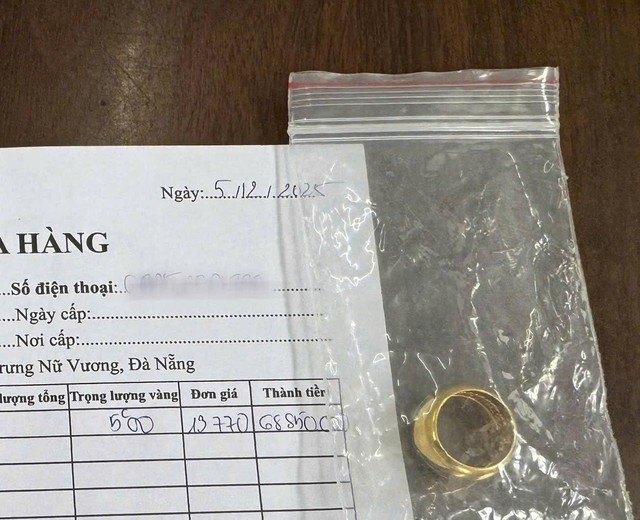 Ngày:..5./12./.2025
A HÀNG
...Số điện thoại:
...Ngày cấp:
...Nơi cấp:
rưng Nữ Vương, Đà Nẵng
lượng tổng Trọng lượng vàng Đơn giá Thành tiền
500 13770 68850